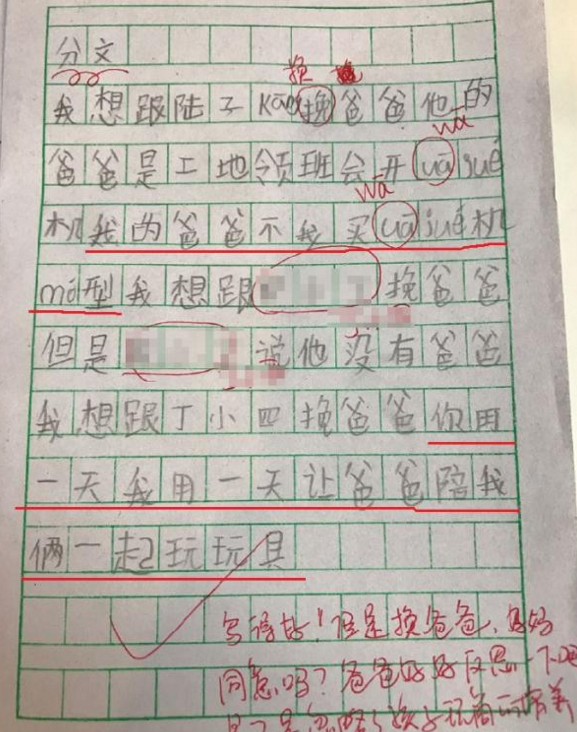 分文
换
我想跟陆子Kāng挽爸爸他的
wā
爸爸是工地领班会开uā jué
wā
机我的爸爸不我买uā jué机
mó型我想跟 挽爸爸
但是 说他没有爸爸
我想跟丁小四挽爸爸你用
一天我用一天让爸爸陪我
俩一起玩玩具
写得好!但是换爸爸,妈妈
同意吗?爸爸好好反思一下吧